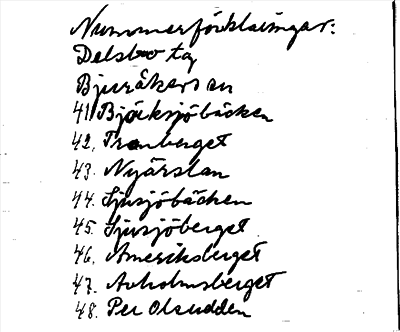 Nummerförklaringar:
Delsbo tg
Bjuråkers sn
41 Björksjöbäcken
42. Tranberget
43. Nyårstan
44. Sjusjöbäcken
45. Sjusjöberget
46. Ameriksberget
47. Avholmsberget
48. Per Olsudden